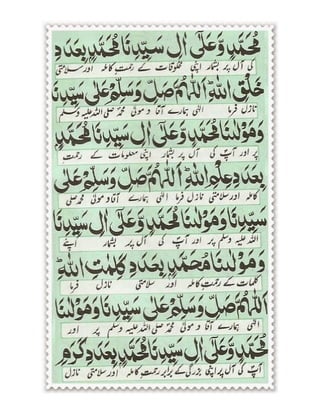 مُحَمَّدٍ وَّعَلٰٓى اٰلِ سَيِّدِنَا مُحَمَّدٍۢ بِعَدَدِ
کی آل پر بشمار اپنی مخلوقات کے رحمتِ کاملہ اور سلامتی
خَلْقِ اللّٰهِ اَللّٰهُمَّ صَلِّ وَسَلِّمْ عَلٰى سَيِّدِنَا
نازل فرما الٰہی ہمارے آقا و مولیٰ محمد صلی اللہ علیہ وسلم
وَمَوْلٰنَا مُحَمَّدٍ وَّعَلٰٓى اٰلِ سَيِّدِنَا مُحَمَّدٍۢ
پر اور آپ کی آل پر بشمار اپنی معلومات کے رحمت
بِعَدَدِ عِلْمِ اللّٰهِ اَللّٰهُمَّ صَلِّ وَسَلِّمْ عَلٰى
کاملہ اور سلامتی نازل فرما الٰہی ہمارے آقا و مولیٰ محمد صلی
سَيِّدِنَا وَمَوْلٰنَا مُحَمَّدٍ وَّعَلٰٓى اٰلِ سَيِّدِنَا
اللہ علیہ وسلم پر اور آپ کی آل پر بشمار اپنے
وَمَوْلٰنَا مُحَمَّدٍۢ بِعَدَدِ كَلِمٰتِ اللّٰهِ
کلمات کے رحمتِ کاملہ اور سلامتی نازل فرما
اَللّٰهُمَّ صَلِّ وَسَلِّمْ عَلٰى سَيِّدِنَا وَمَوْلٰنَا
الٰہی ہمارے آقا و مولیٰ محمد صلی اللہ علیہ وسلم پر اور
مُحَمَّدٍ وَّعَلٰٓى اٰلِ سَيِّدِنَا مُحَمَّدٍۢ بِعَدَدِ كَرَمِ
آپ کی آل پر اپنی بزرگی کے برابر رحمتِ کاملہ اور سلامتی نازل